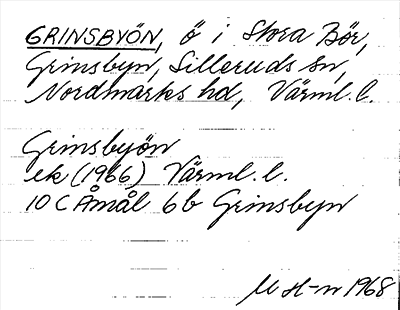 GRINSBYÖN, ö i Stora Bör,
Grinsbyn, Silleruds sn,
Nordmarks hd, Värml. l.
Grinsbyön
ek (1966) Värml. l.
10 C Åmål 6b Grinsbyn
M st-m 1968